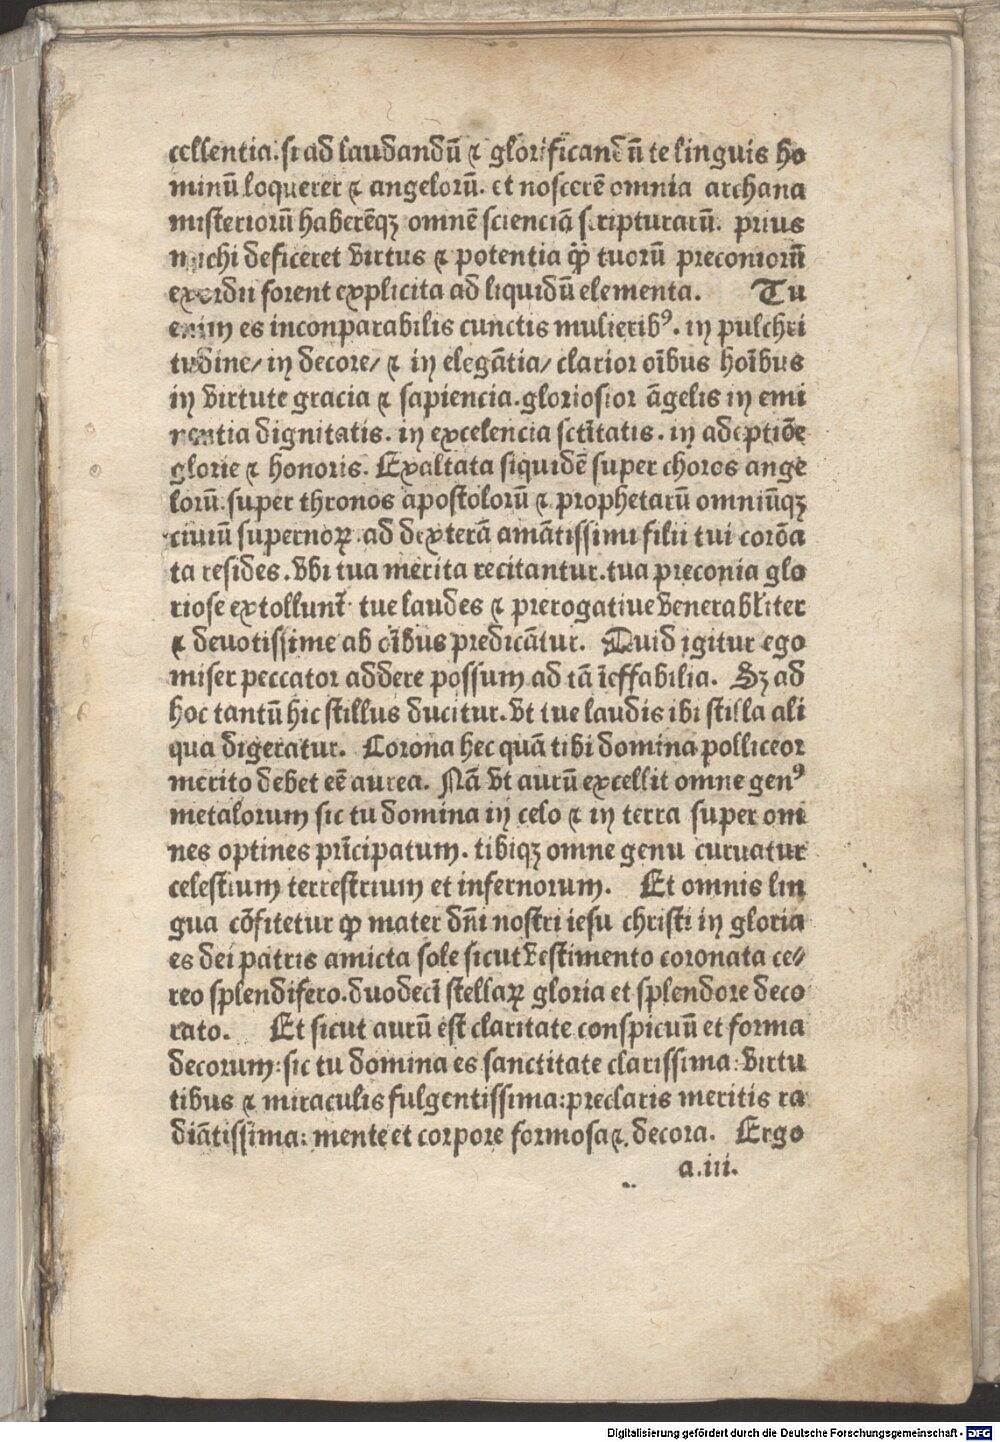 cellentia. si ad laudandū ⁊ glorificandū te linguis ho
minū loquerer ⁊ angelorū. et noscerē omnia archana
misteriorū haberēqꝫ omnē scienciā scripturarū. prius
michi deficeret virtus ⁊ potentia qꝫ̄ tuorū preconiorū
exordii forent explicita ad liquidū elementa. Tu
enim es inconparabilis cunctis mulieribꝰ. in pulchri
tudine/ in decore/ ⁊ in elegātia/ clarior oībus hoībus
in virtute gracia ⁊ sapiencia. gloriosior āgelis in emi
nentia dignitatis. in excelencia sctītatis. in adeptiōe
glorie ⁊ honoris. Exaltata siquidē super choros ange
lorū. super thronos apostolorū ⁊ prophetarū omniūqꝫ
ciuiū supernoꝝ. ad dexterā amātissimi filii tui corōa
ta resides. vbi tua merita recitantur. tua preconia glo
riose extollunt̄ tue laudes ⁊ prerogatiue venerabiliter
⁊ deuotissime ab oībus predicātur. Quid igitur ego
miser peccator addere possum ad tā īeffabilia. Sꝫ ad
hoc tantū hic stillus ducitur. vt tue laudis ibi stilla ali
qua digeratur. Corona hec quā tibi domina polliceor
merito debet eē aurea. Nā vt aurū excellit omne genꝰ
metalorum sic tu domina in celo ⁊ in terra super om
nes optines prīcipatum. tibiqꝫ omne genu curuatur
celestium terrestrium et infernorum. Et omnis lin
gua cōfitetur ꝙ mater dn̄i nostri iesu christi in gloria
es dei patris amicta sole sicut vestimento coronata ce/
reo splendifero. duodecī stellaꝝ gloria et splendore deco
rato. Et sicut aurū est claritate conspicuū et forma
decorum: sic tu domina es sanctitate clarissima: virtu
tibus ⁊ miraculis fulgentissima: preclaris meritis ra
diātissima: mente et corpore formosa ⁊. decora. Ergo
a.iii.
Digitalisierung gefördert durch die Deutsche Forschungsgemeinschaft - DFG